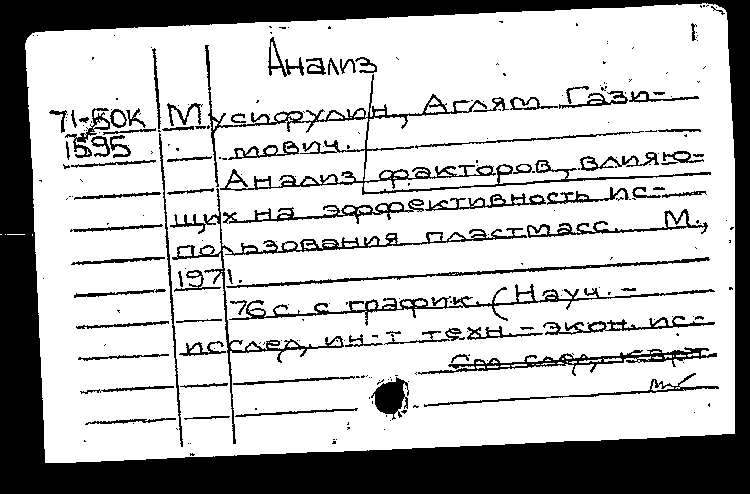 Анализ
71-50К Мусифулин, Аглям Гази-
1595 мович.
Анализ факторов, влияю-
щих на эффективность ис-
пользования пластмасс. М.,
1971.
76 с. с график. (Науч.-
исслед. ин-т техн.-экон. ис-
См след. карт